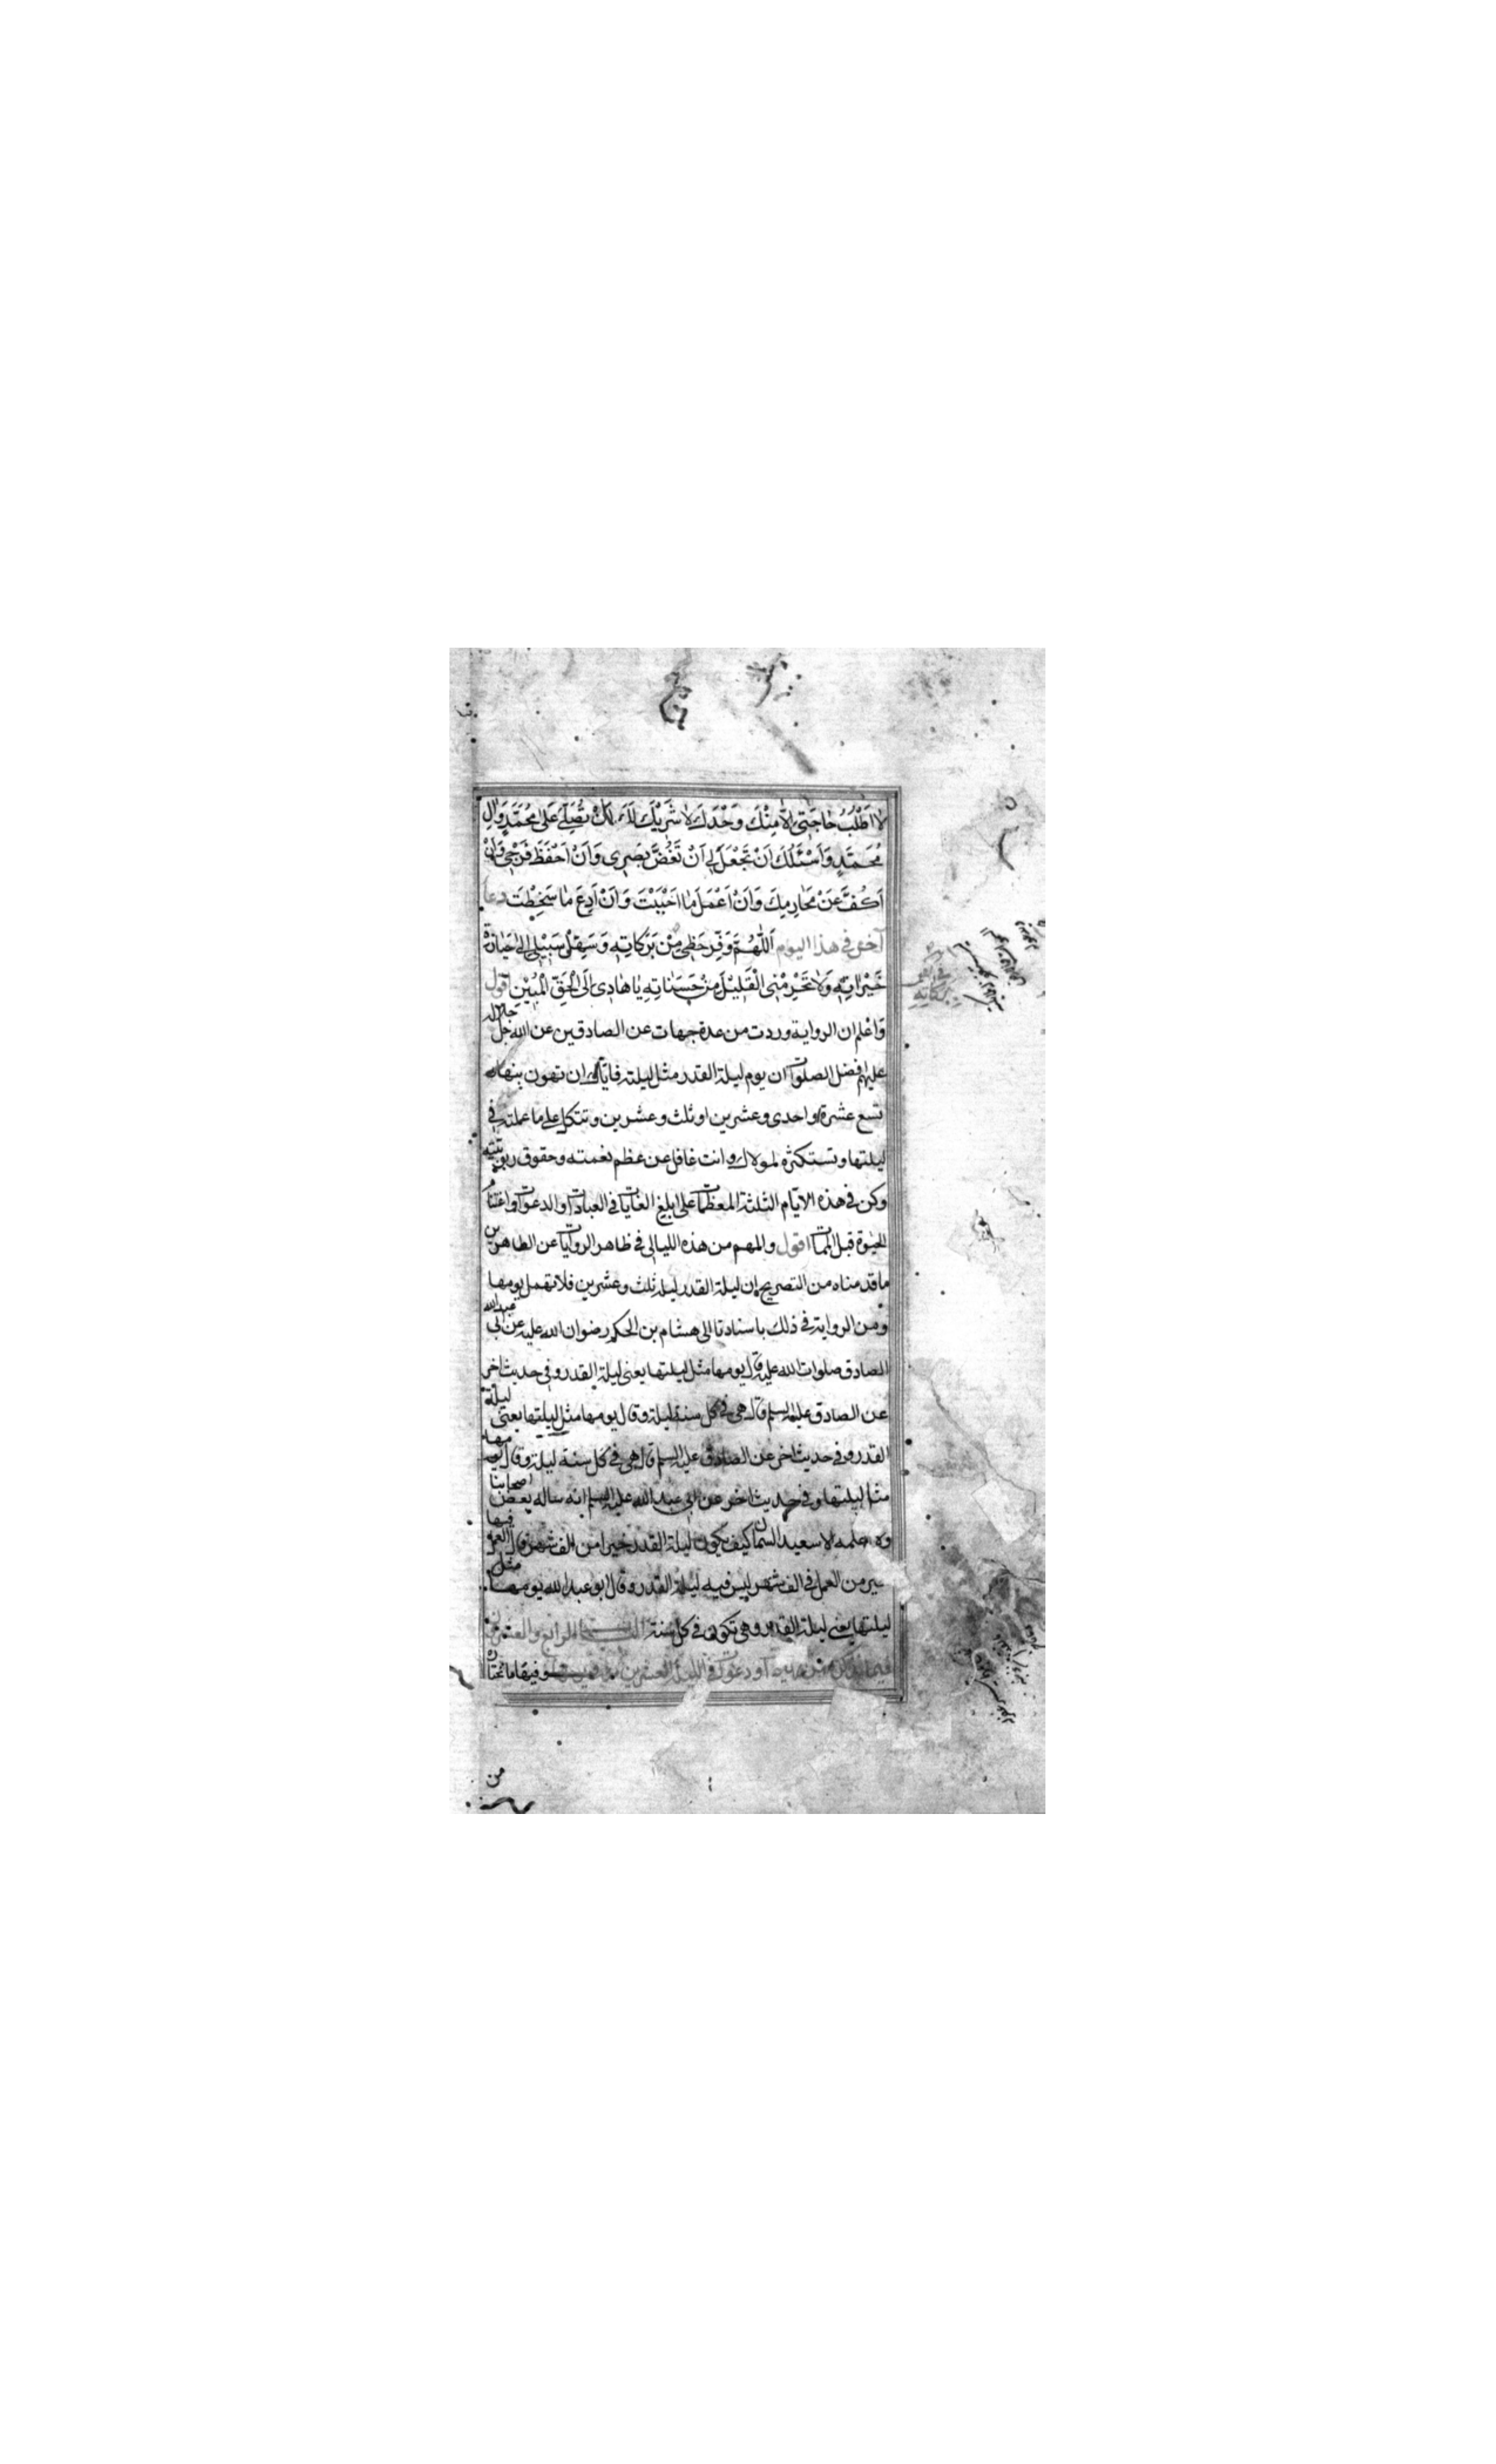 لا اَطْلُبُ حٰاجَتى اِلاّ مِنْكَ وَحْدَكَ لا شَرٖيكَ لَكَ اَنْ تُصَلِّىَ عَلىٰ مُحَمَّدٍ وَاٰلِ
مُحَمَّدٍ وَاَسْئَلُكَ اَنْ تَجْعَلَ لى اَنْ تَغُضَّ بَصَرى وَاَنْ اَحْفَظَ فَرْجى وَاَنْ
اَكُفَّ عَنْ مَحٰارِمِكَ وَاَنْ اَعْمَلَ مٰا اَحْبَبْتَ وَاَنْ اَدَعَ مٰا سَخِطْتَ دعا
آخر فى هذا اليوم اَللّٰهُمَّ وَفِّرْ حَظّى مِنْ بَرَكاتِهِ وَسَهِّلْ سَبيلى اِلىٰ حِيٰازَة
خَيْرٰاتِهِ وَلاٰ تَحْرِمْنِى الْقَليلَ مِنْ حَسَنٰاتِهِ يٰا هٰادى اِلَى الْحَقِّ الْمُبينِ اقول
وَاعلم ان الرواية وردت من عدة جهات عن الصادقين عن الله جل جلاله
عليهم افضل الصلوات ان يوم ليلة القدر مثل ليلته فاياك ان تهون بنهار
تسع عشرة او احدى وعشرين او ثلث وعشرين وتتكل على ما عملته فى
ليلتها وتستكثره لمولاك وانت غافل عن عظم نعمته وحقوق ربوبيته
وكن فى هذه الايّام الثلثة المعظمات على ابلغ الغايات فى العبادات والدعوات واغتنام
الحيٰوة قبل الممات اقول والمهم من هذه الليالى فى ظاهر الروايات عن الطاهرين
ما قدمناه من التصريح ان ليلة القدر ليلة ثلث وعشرين فلا تهمل يومها
ومن الرواية فى ذلك باسنادنا الى هشام بن الحكم رضوان الله عليه عن ابى عبد الله
الصادق صلوات الله عليه قال يومها مثل ليلتها يعنى ليلة القدر وفى حديث اخر
عن الصادق عليه السلم قال هى فى كل سنة ليلة وقال يومها مثل ليلتها يعنى ليلة
القدر وفى حديث اخر عن الصادق عليه السلم قال هى فى كل سنة ليلة وقال يومها
مثل ليلتها وفى حديث اخر عن ابى عبد الله عليه السلم انه ساله بعض اصحابنا
ولا اعلمه الا سعيد السمان كيف يكون ليلة القدر خيرا من الف شهر قال العمل فيها
خير من العمل فى الف شهر ليس فيه ليلة القدر وقال ابو عبد الله يومها مثل
ليلتها يعنى ليلة القدر وهى تكون فى كل سنة الباب الرابع والعشرون
فيما نذكره من زيادات ودعوات فى الليلة العشرين منه وفيها ما نختاره
من